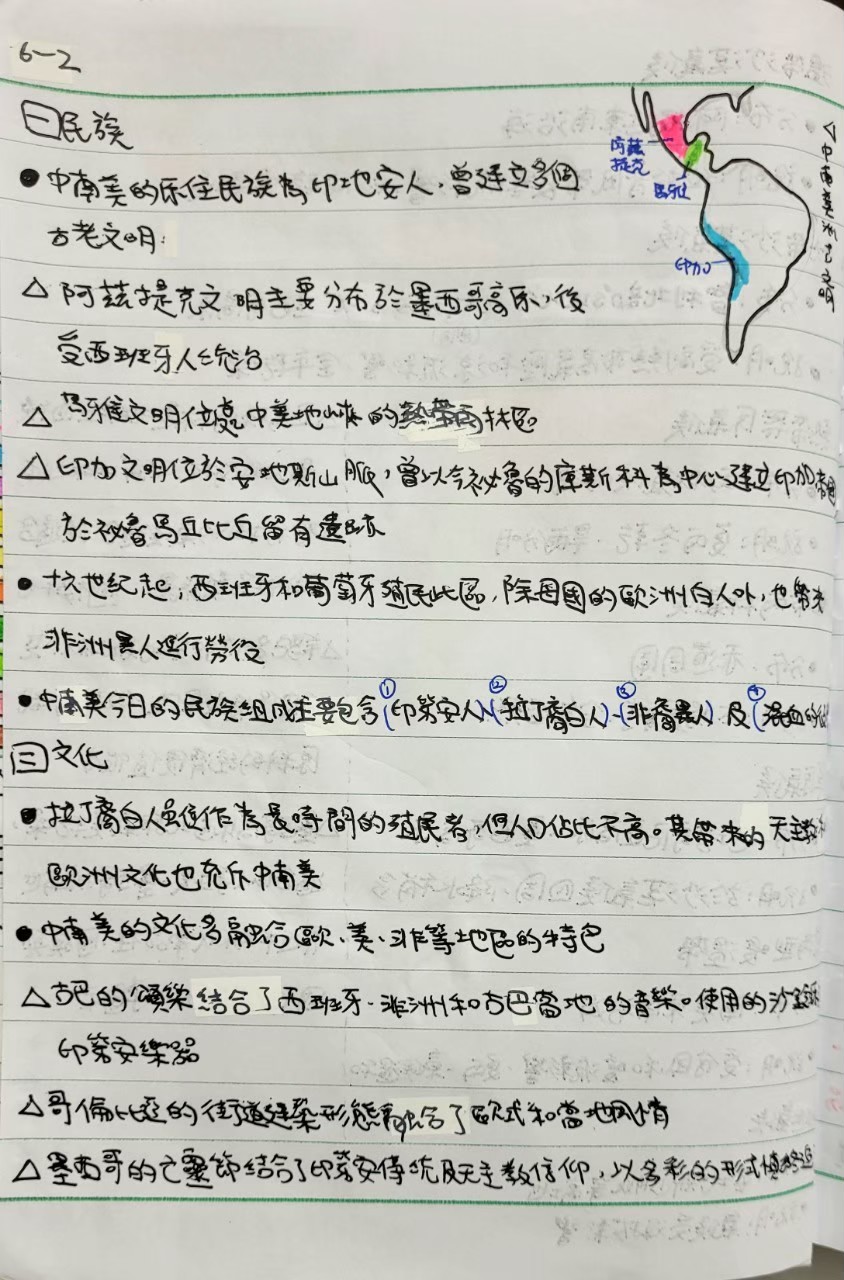 6-2
一 民族
• 中南美的原住民族為印地安人，曾建立多個
古老文明：
△ 阿茲提克文明主要分布於墨西哥高原，後
受西班牙人統治
△ 馬雅文明位處中美地峽的熱帶雨林區
△ 印加文明位於安地斯山脈，曾以今祕魯的庫斯科為中心建立印加帝國
於祕魯馬丘比丘留有遺跡
• 十六世紀起，西班牙和葡萄牙殖民此區，除母國的歐洲白人外，也帶來
非洲黑人進行勞役
• 中南美今日的民族組成主要包含①(印第安人)、②(拉丁裔白人)、③(非裔黑人)及④(混血的
二 文化
• 拉丁裔白人雖作為長時間的殖民者，但人口佔比不高。其帶來的天主教
歐洲文化也充斥中南美
• 中南美的文化多融合歐、美、非等地區的特色
△ 古巴的頌樂結合了西班牙、非洲和古巴當地的音樂。使用的沙
印第安樂器
△ 哥倫比亞的街道建築形態融合了歐式和當地風情
△ 墨西哥的亡靈節結合了印第安傳統及天主教信仰，以多彩的形式
阿茲
提克
馬雅
印加
▽中南美洲古文明